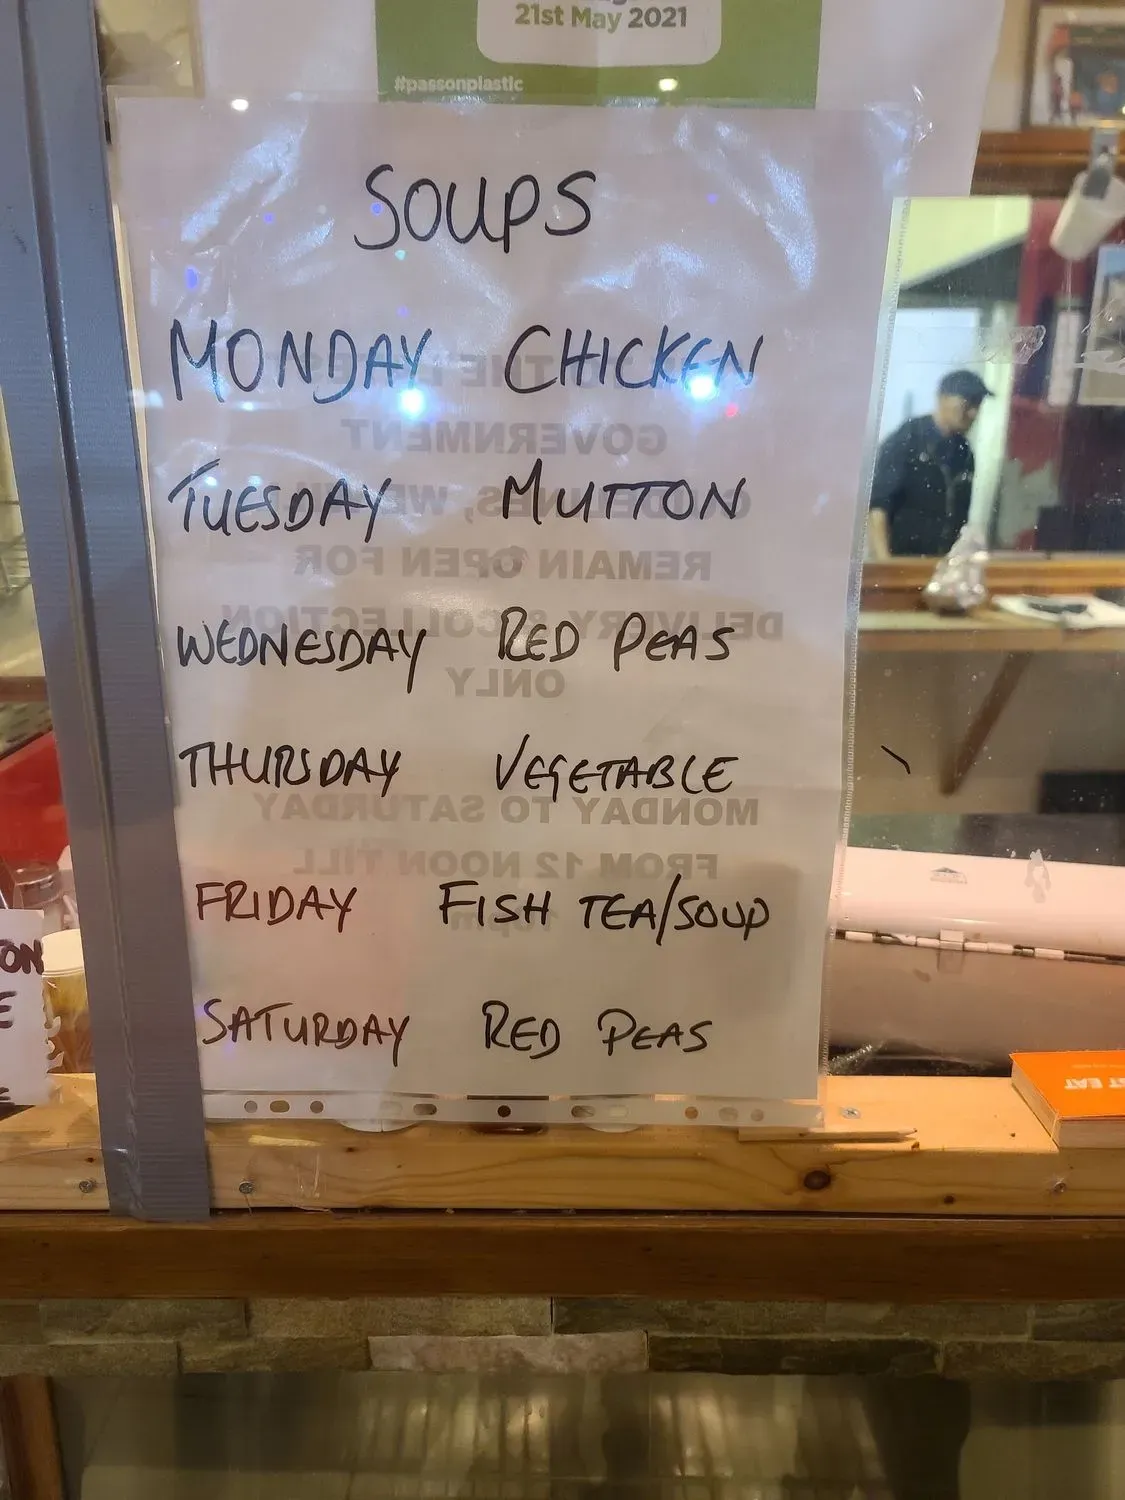 21st May 2021
#passonplastic
SOUPS
MONDAY CHICKEN
TUESDAY MUTTON
WEDNESDAY RED PEAS
THURSDAY VEGETABLE
FRIDAY FISH TEA/SOUP
SATURDAY RED PEAS
GOVERNMENT
REMAIN OPEN FOR
DELIVERY & COLLECTION
ONLY
MONDAY TO SATURDAY
FROM 12 NOON TILL
10pm
EAT